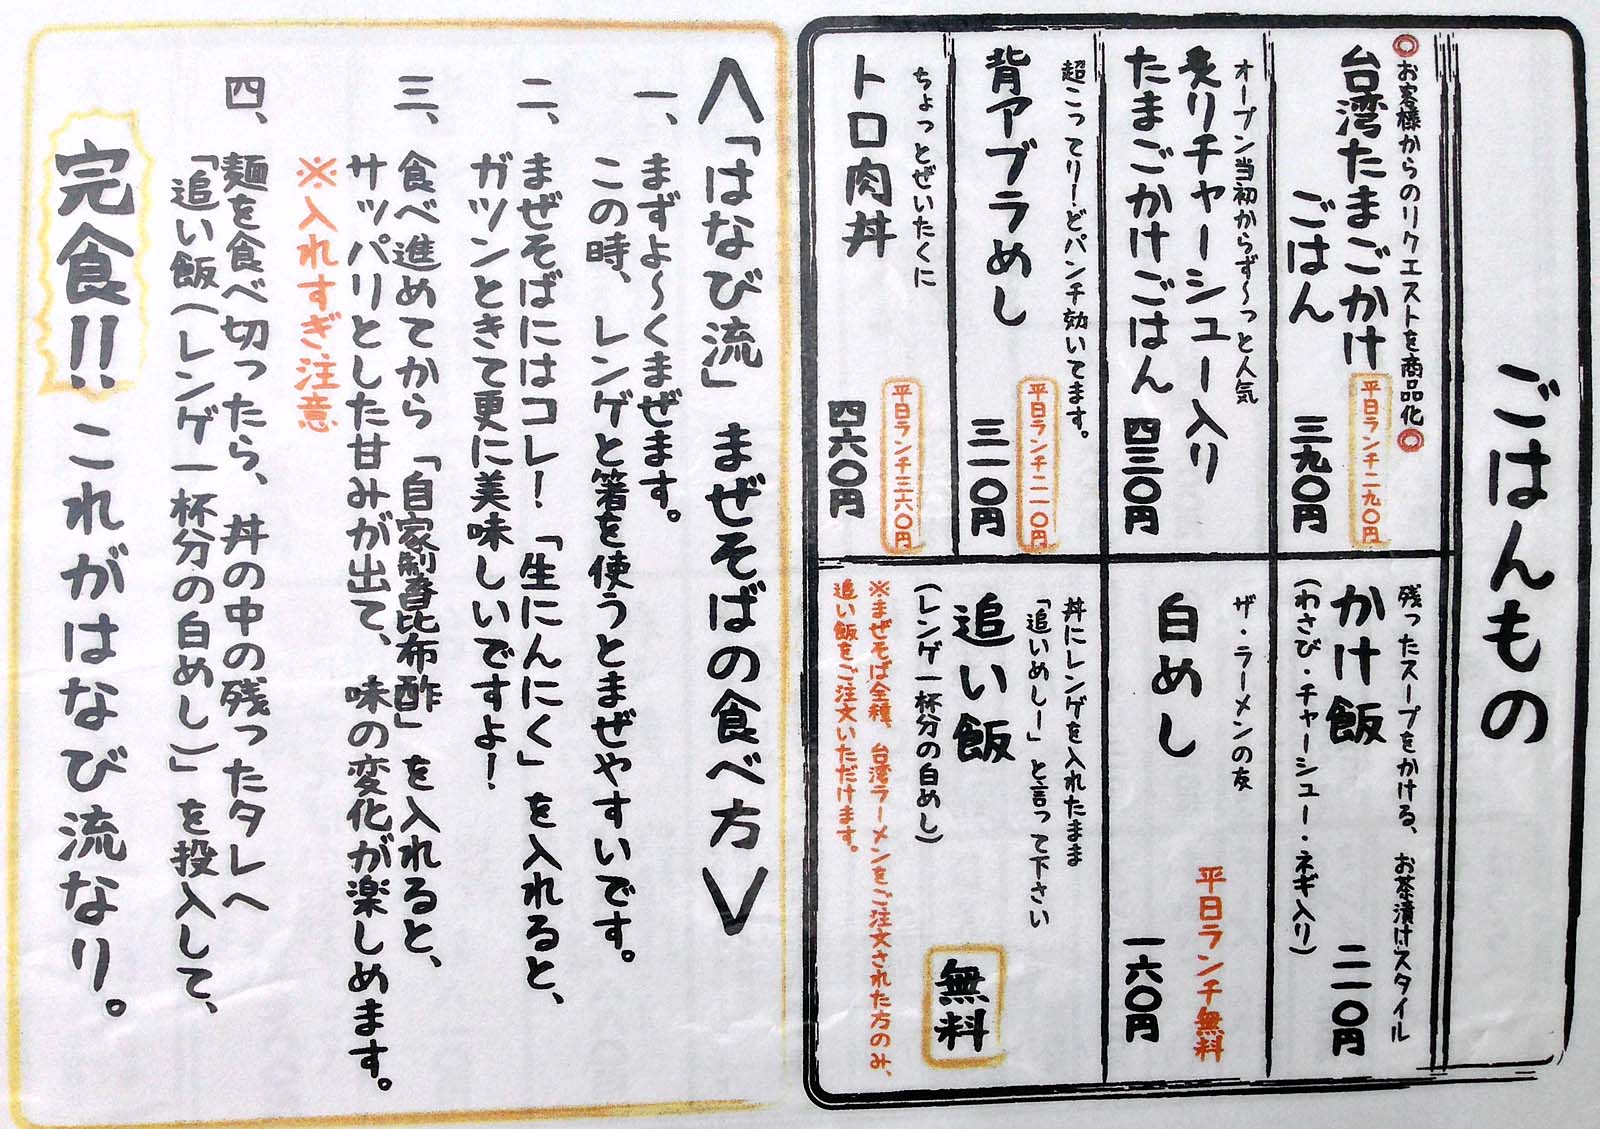 ごはんもの
◎お客様からのリクエストを商品化◎
台湾たまごかけ
ごはん
平日ランチ二九〇円
三九〇円
オープン当初からず〜っと人気
炙りチャーシュー入り
たまごかけごはん
四三〇円
超こってりーどパンチ効いてます。
背アブラめし
平日ランチ二一〇円
三一〇円
ちょっとぜいたくに
トロ肉丼
平日ランチ三六〇円
四六〇円
残ったスープをかける、お茶漬けスタイル
かけ飯
(わさび・チャーシュー・ネギ入り)
二一〇円
ザ・ラーメンの友
白めし
平日ランチ無料
一六〇円
丼にレンゲを入れたまま
「追いめしー」と言って下さい
追い飯
(レンゲ一杯分の白めし)
無料
※まぜそば全種、台湾ラーメンをご注文された方のみ、
追い飯をご注文いただけます。
<「はなび流」まぜそばの食べ方>
一、まずよ〜くまぜます。
この時、レンゲと箸を使うとまぜやすいです。
二、まぜそばにはコレ!「生にんにく」を入れると、
ガツンときて更に美味しいですよ!
三、食べ進めてから「自家製昆布酢」を入れると、
サッパリとした甘みが出て、味の変化が楽しめます。
※入れすぎ注意
四、麺を食べ切ったら、丼の中の残ったタレへ
「追い飯(レンゲ一杯分の白めし)」を投入して、
完食!!これがはなび流なり。